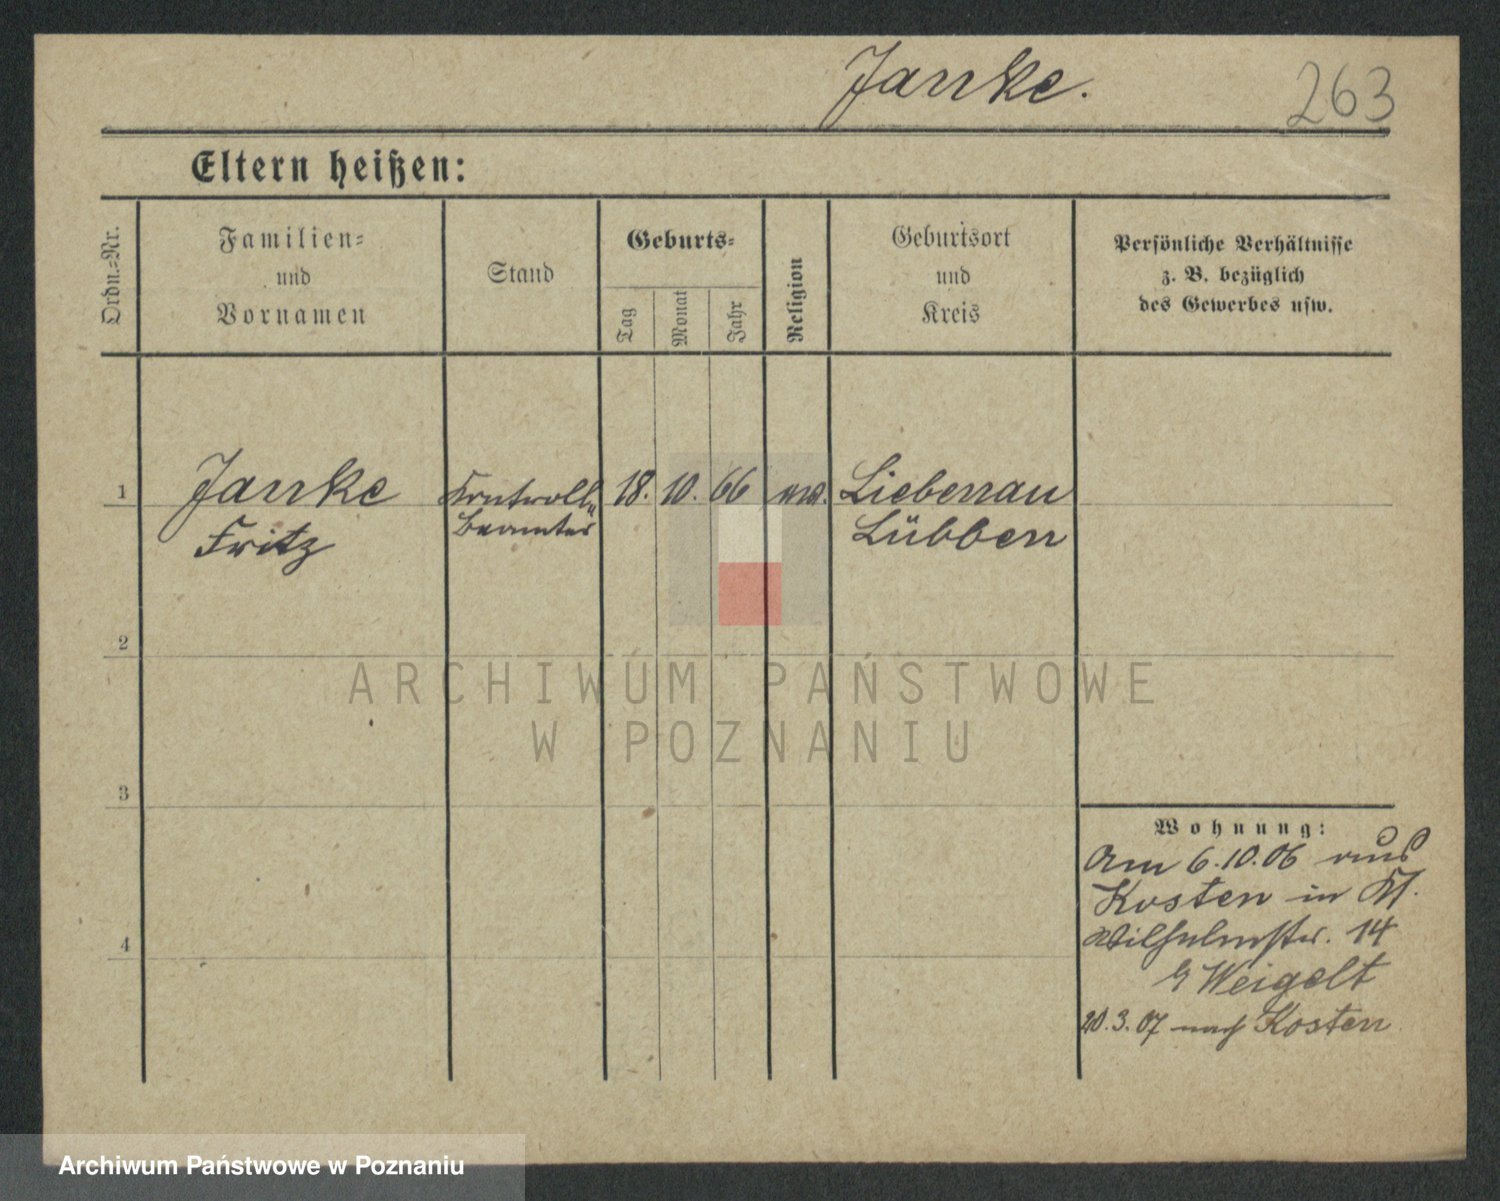 Janke.
263
Eltern heißen:
Ordn.-Nr.
Familien-
und
Vornamen
Stand
Geburts-
Tag
Monat
Jahr
Religion
Geburtsort
und
Kreis
Persönliche Verhältnisse
z. B. bezüglich
des Gewerbes usw.
1
Janke
Fritz
Kontroll-
Beamter
18. 10. 66
ev.
Liebenau
Lübben
2
3
4
Wohnung:
Am 6.10.06 aus
Kosten in
Wilhelmstr. 14
b/ Weigelt
20.3.07 nach Kosten
ARCHIWUM PAŃSTWOWE
W POZNANIU
Archiwum Państwowe w Poznaniu